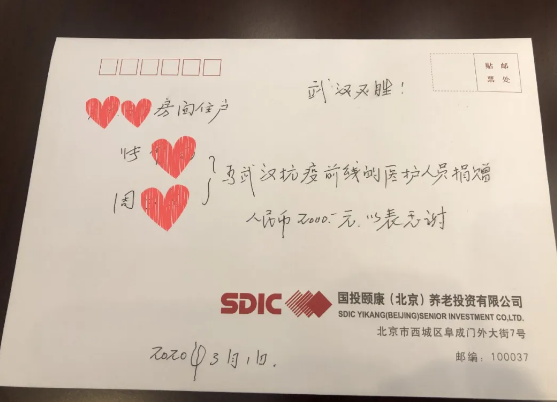 贴 邮
票 处
武汉必胜!
房间住户
周
为武汉抗疫前线的医护人员捐赠
人民币2000.-元,以表无谢
SDIC 国投颐康(北京)养老投资有限公司
SDIC YIKANG(BEIJING)SENIOR INVESTMENT CO.,LTD.
北京市西城区阜成门外大街7号
邮编:100037
2020年3月1日.